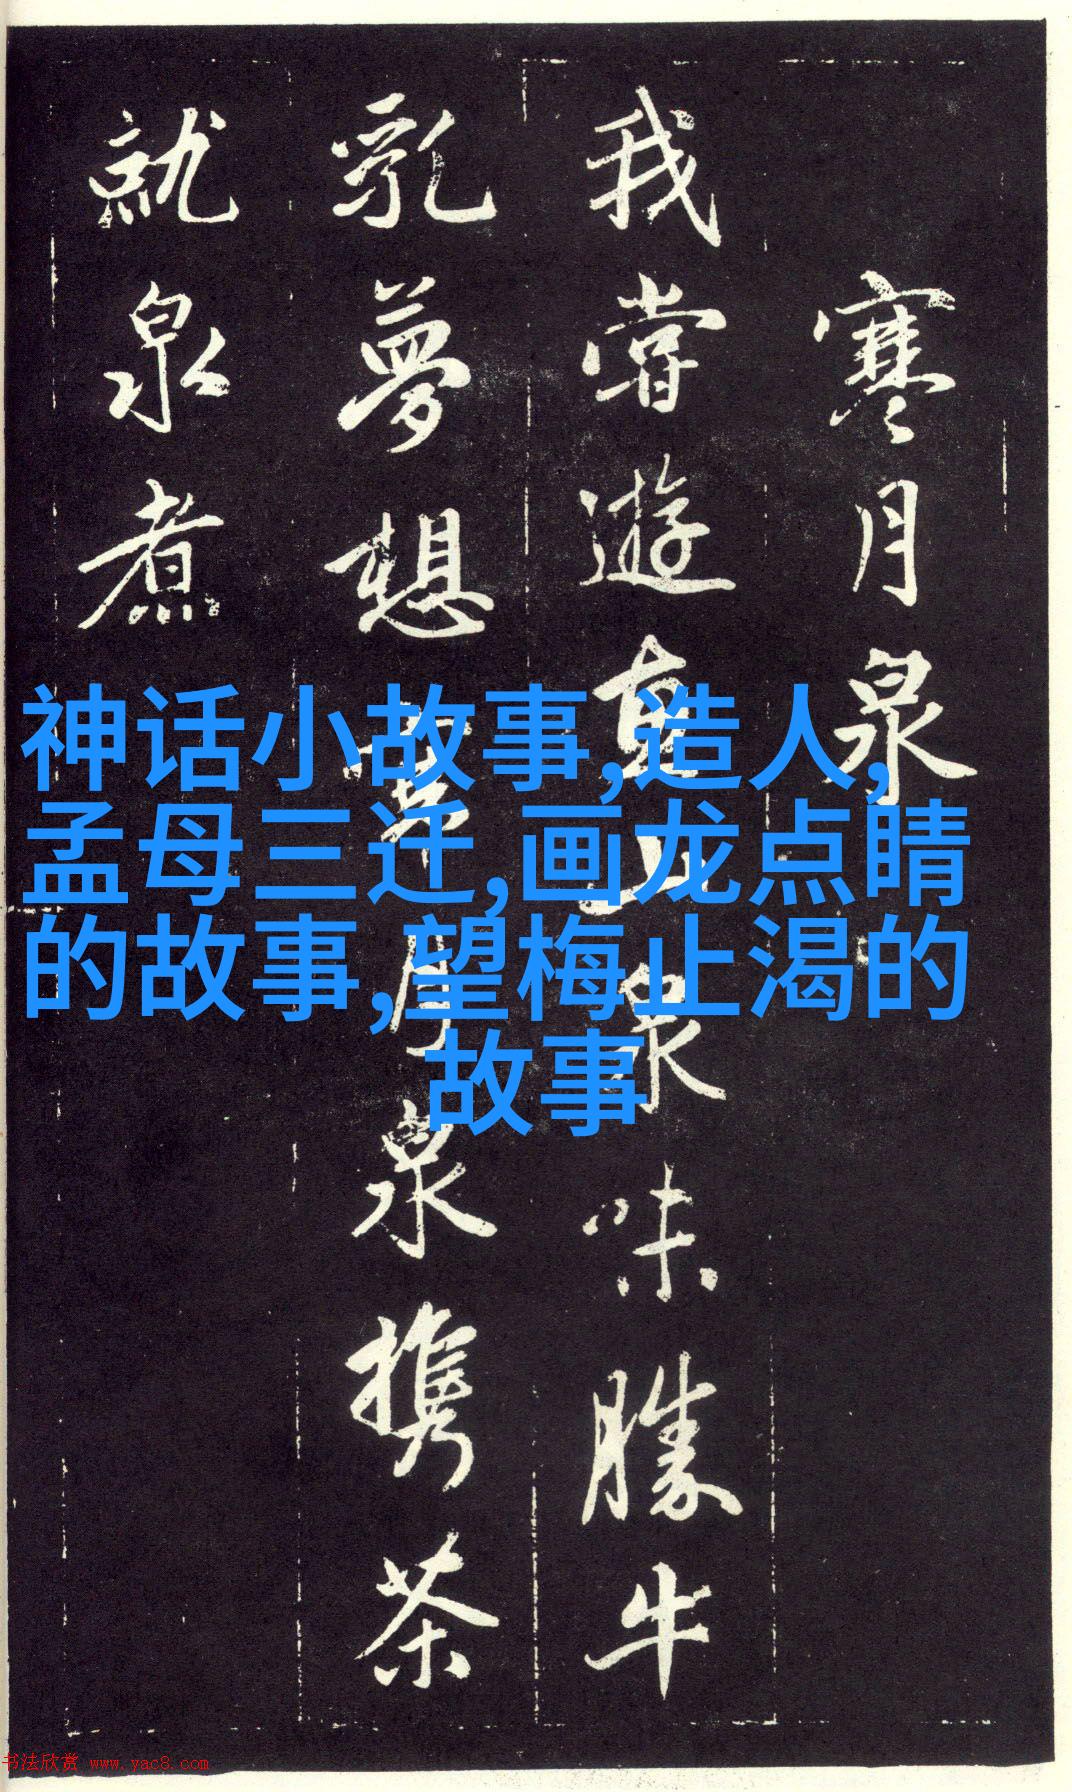 寒月泉
我嘗遊惠山泉味勝牛
乳夢想寒月泉攜茶
就泉煮
神话小故事,造人,
孟母三迁,画龙点睛
的故事,望梅止渴的
故事
书法欣赏 www.yac8.com